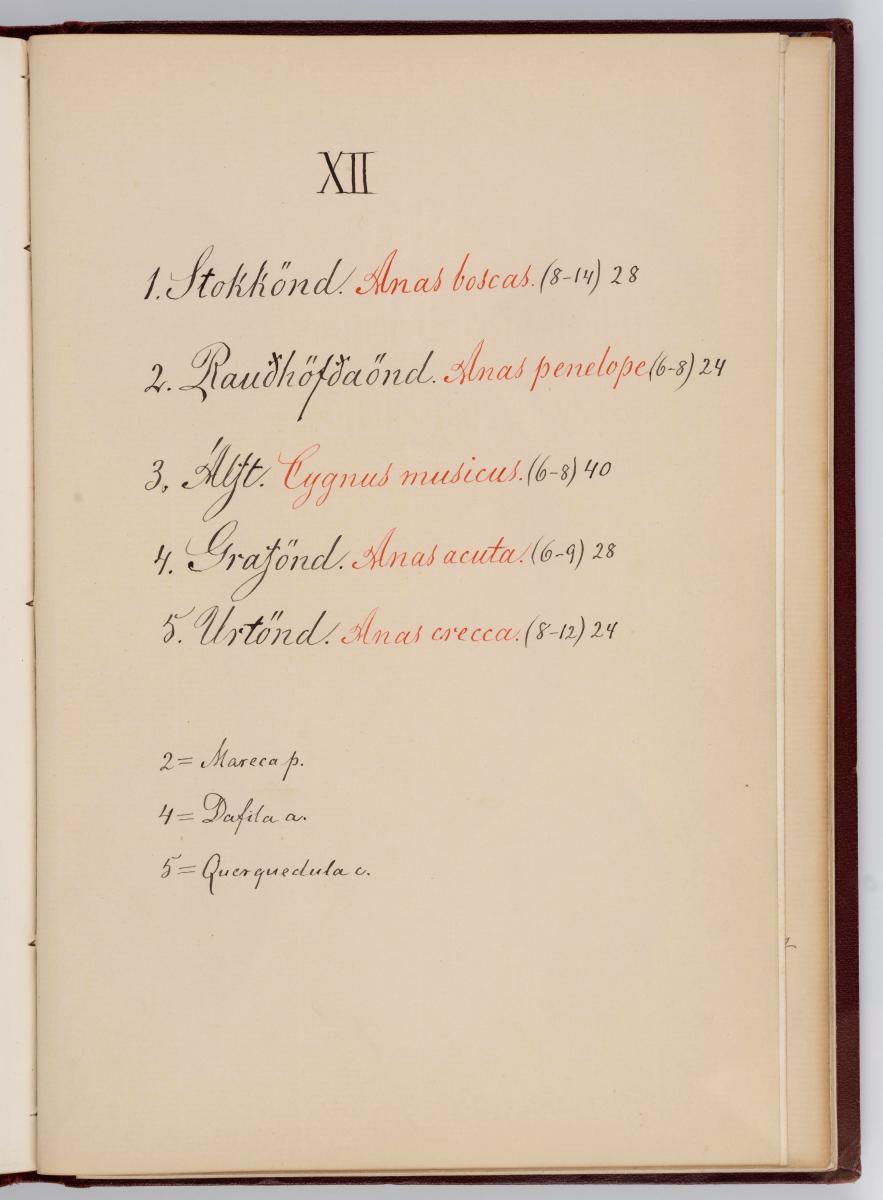 XII
1. Stokkönd. Anas boscas. (8-14) 28
2. Rauðhöfðaönd. Anas penelope (6-8) 24
3. Álft. Cygnus musicus. (6-8) 40
4. Grafönd. Anas acuta. (6-9) 28
5. Urtönd. Anas crecca. (8-12) 24
2 = Mareca p.
4 = Dafila a.
5 = Querquedula c.